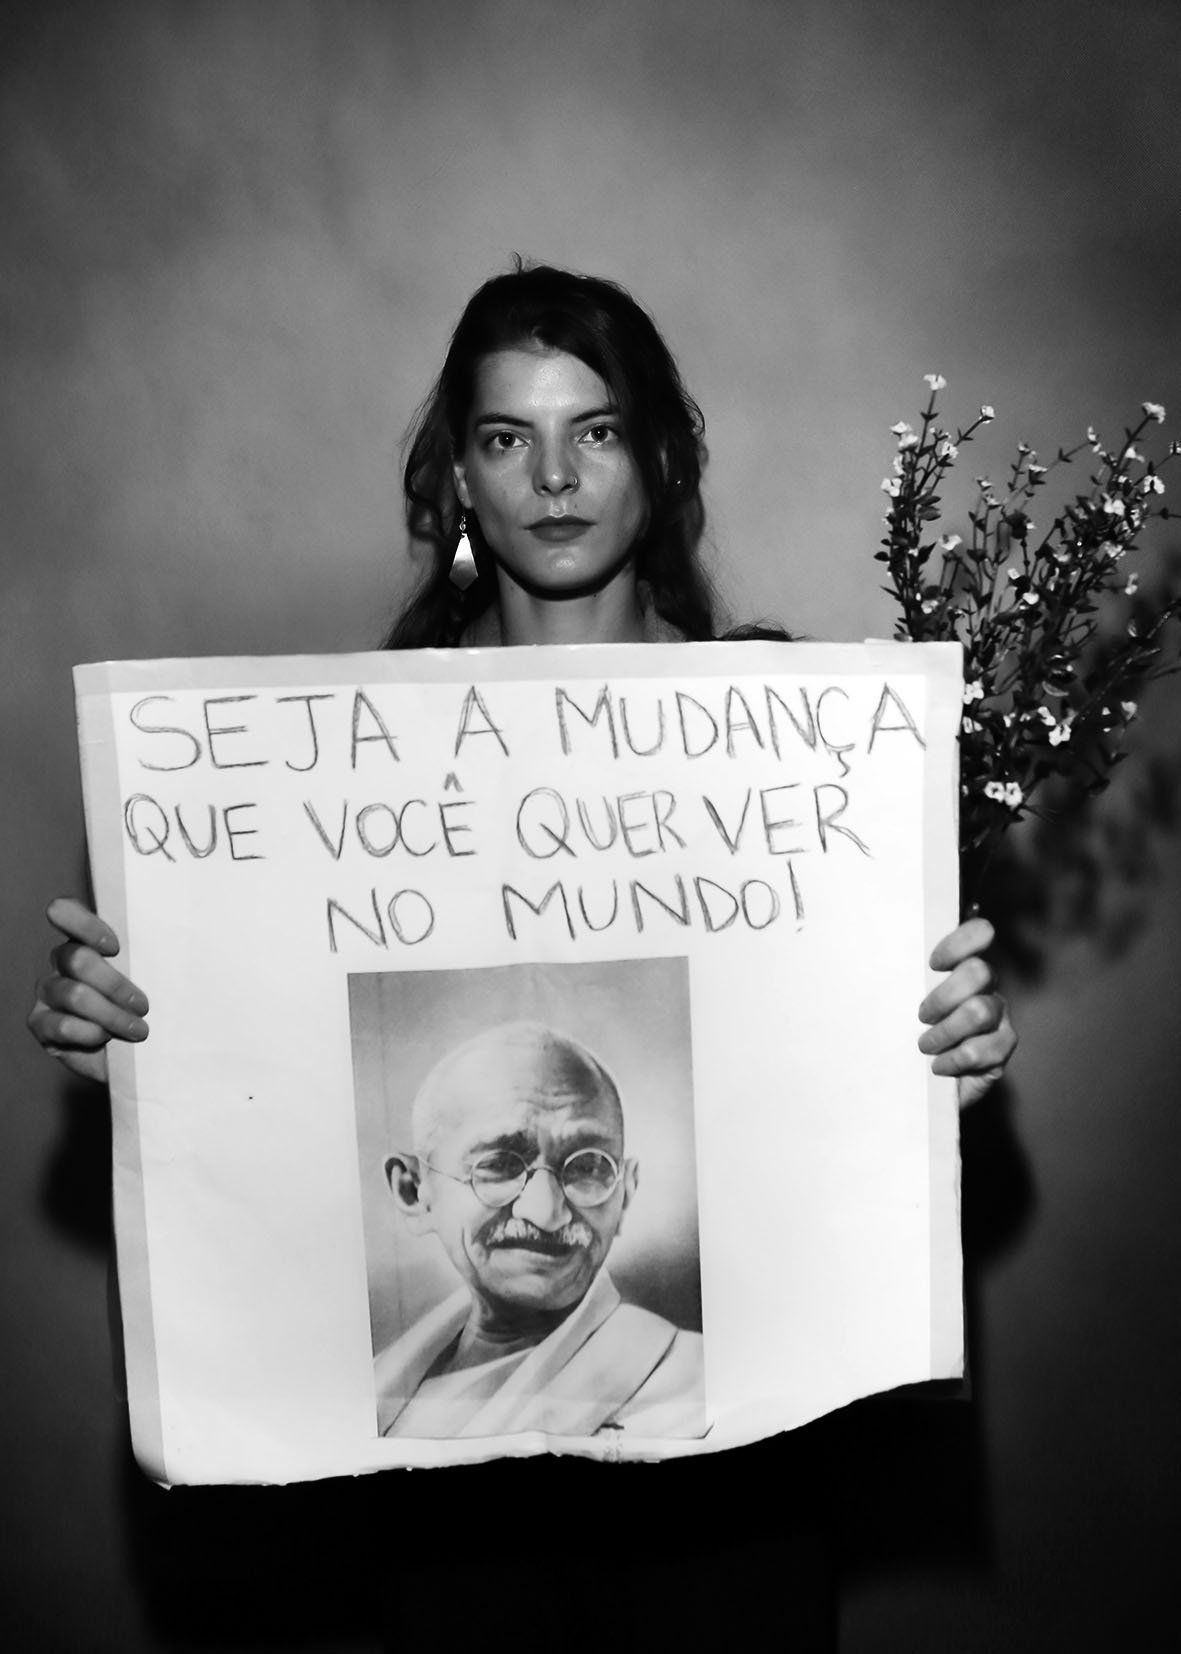 SEJA A MUDANÇA
QUE VOCÊ QUER VER
NO MUNDO!